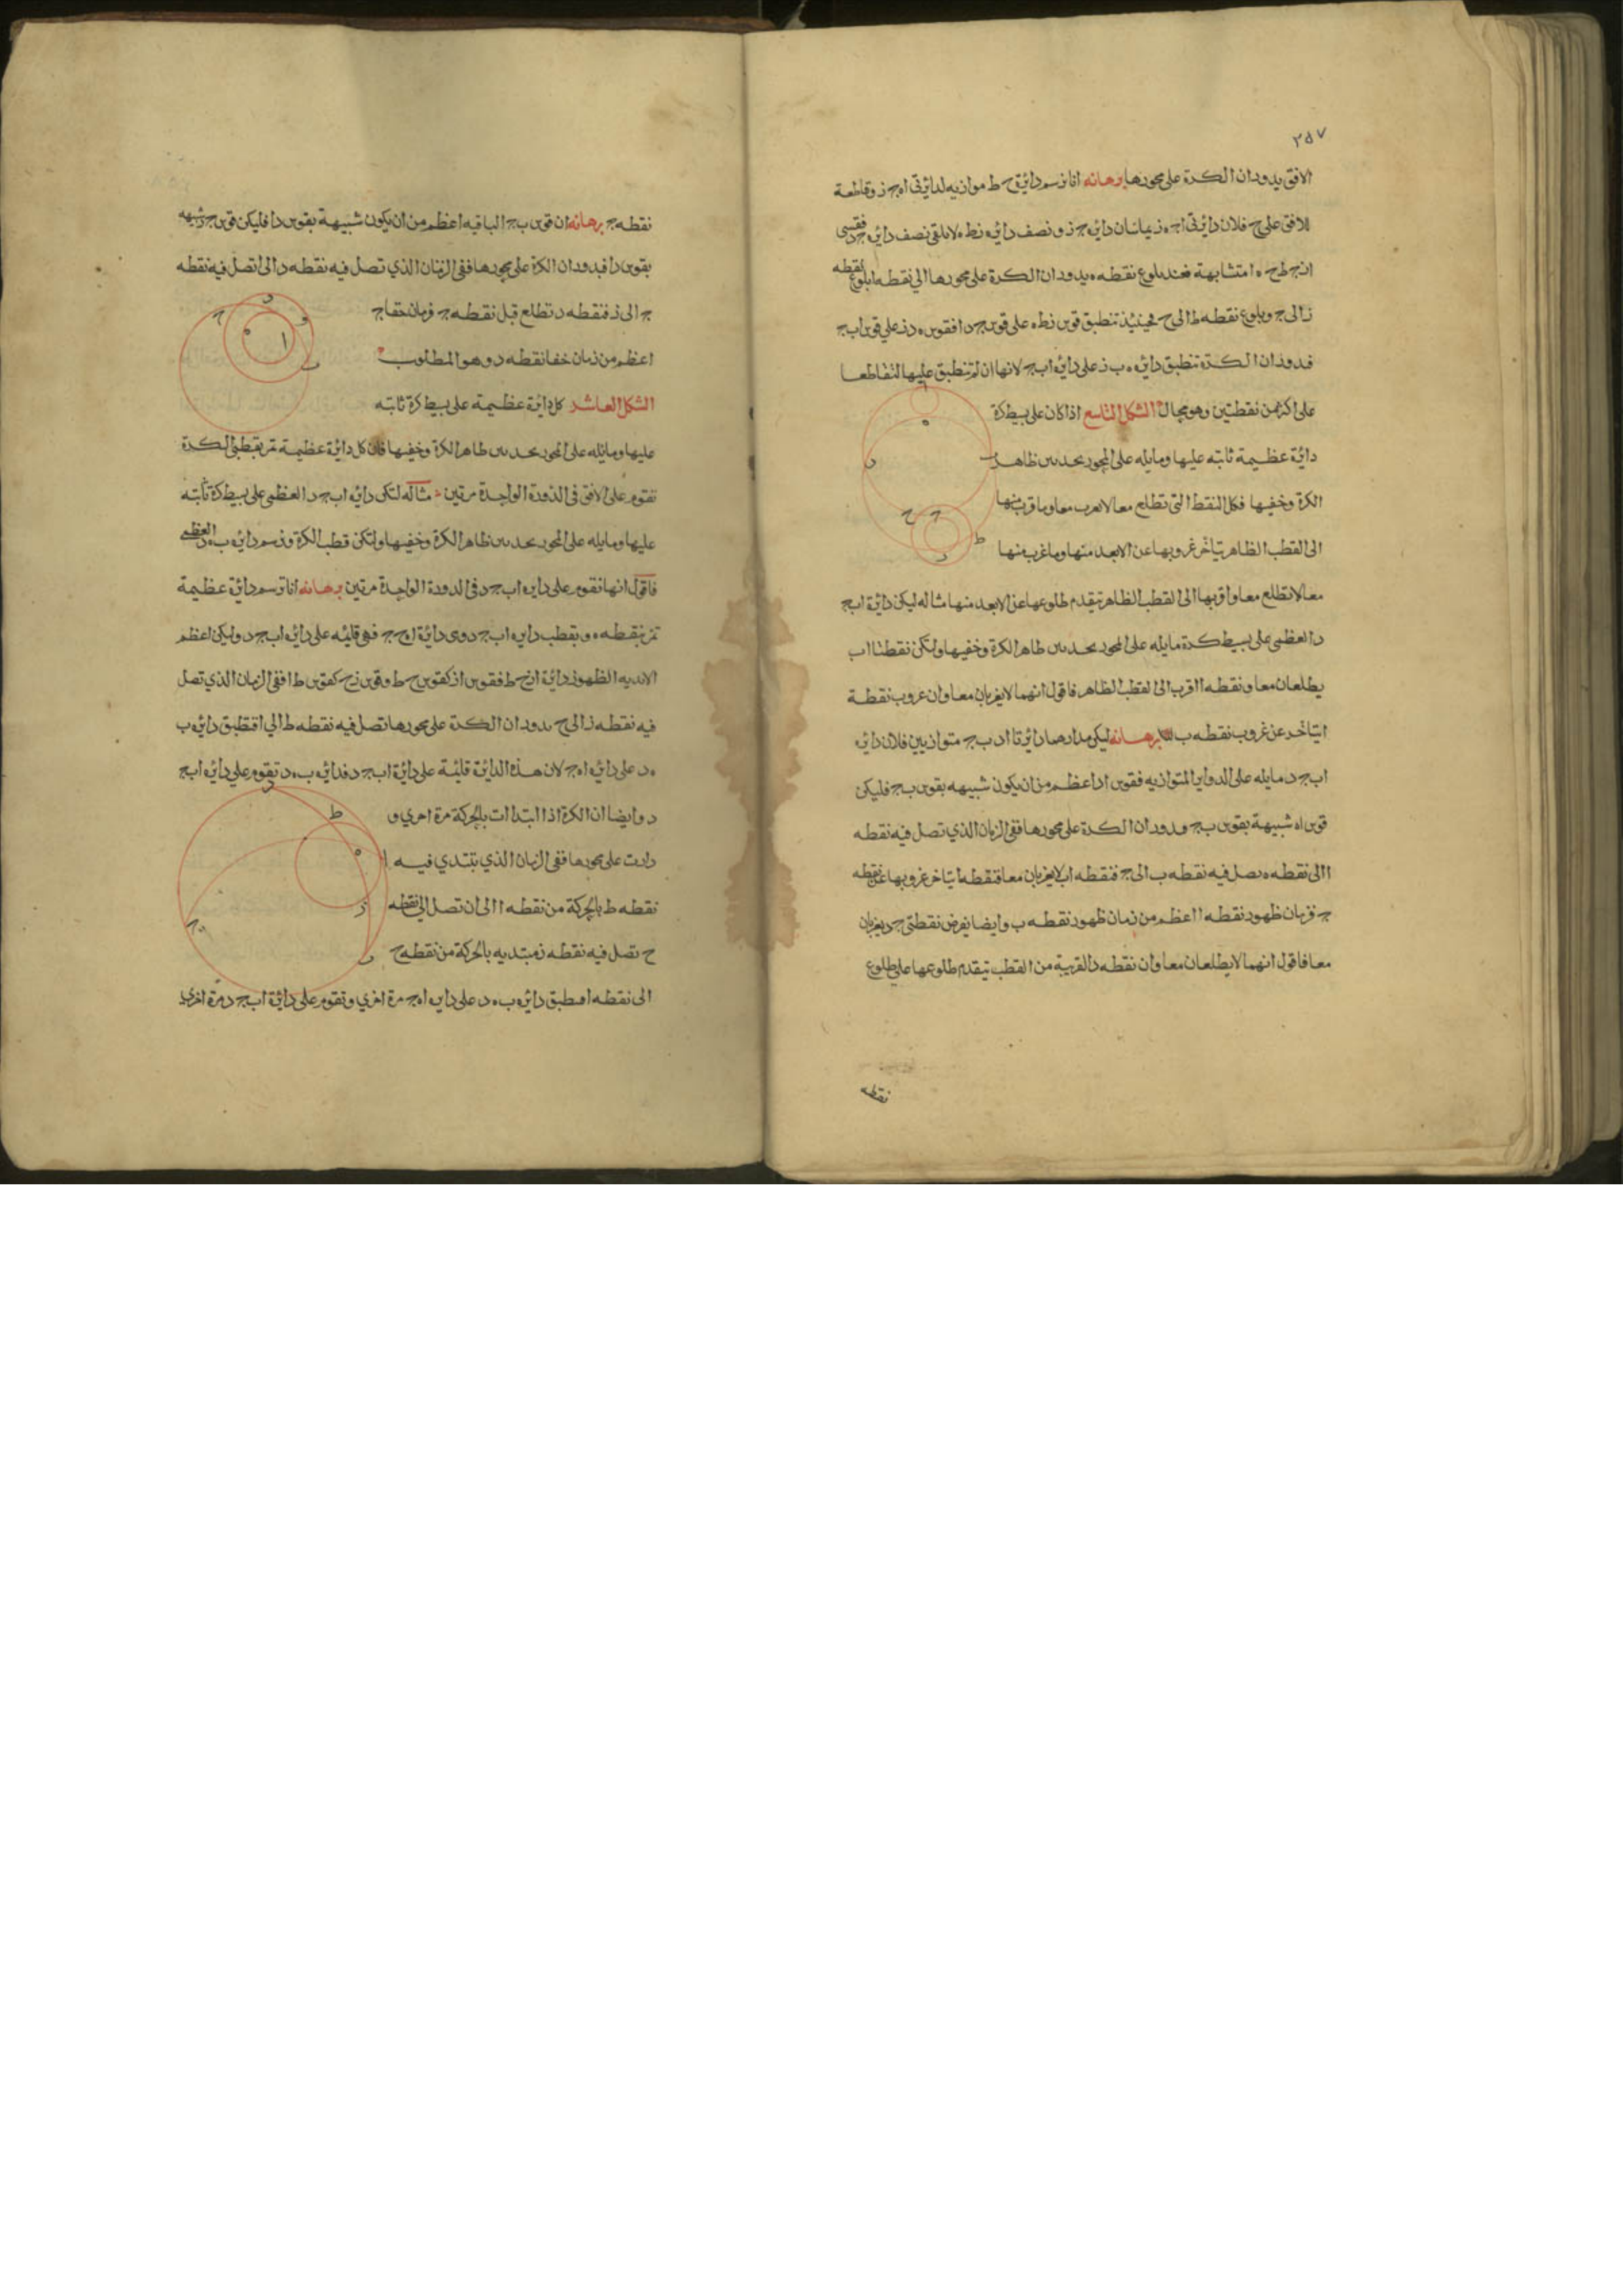 ٢٥٧
الافق بدوران الكرة على محورها برهانه انا نرسم دائرة ح ط موازيه لدائرتى اه ج ز وقاطعة
الافق على ح فلان دائرتى اج ه ز يماسان دائره ج ز ونصف دائره نط ه لا يلقى نصف دائره ج د فقسى
انج ط ح ه امتشابهة فعند بلوغ نقطه ه بدوران الكرة على محورها الى نقطه ا بلوغ نقطه
ز الى ج وبلوغ نقطه ط الى ح فحينئذ تنطبق قوس نط ه على قوس ج د ا فقوس ه د ز على قوس اب ج
فدوران الكرة تنطبق دائره ه ب ز على دائره اب ج لانها ان لم تنطبق عليها لتقاطعا
على اكثر من نقطتين وهو محال الشكل التاسع اذا كان على بسيط كرة
دائرة عظيمة ثابته عليها ومايله على المحور بحد بين ظاهر
الكرة وخفيها فكل النقط التى تطلع معا لا تغرب معا وما قرب منها
الى القطب الظاهر يتاخر غروبها عن الابعد منها وما غرب منها
معا لا تطلع معا واقربها الى القطب الظاهر يتقدم طلوعها عن الابعد منها مثاله ليكن دائرة اب ج
د العظمى على بسيط كرة مايله على المحور بحد بين ظاهر الكرة وخفيها ولتكن نقطتا اب
يطلعان معا ونقطه ا اقرب الى القطب الظاهر فاقول انهما لا يغربان معا وان غروب نقطة
ا يتاخر عن غروب نقطه ب برهانه ليكن مدارهما دائرتا اد ب ج متوازيين فلان دائره
اب ج د مايله على الدواير المتوازيه فقوس اد اعظم من ان يكون شبيهه بقوس ب ج فليكن
قوس اه شبيهة بقوس ب ج فدوران الكرة على محورها ففى الزمان الذي تصل فيه نقطه
ا الى نقطه ه تصل فيه نقطه ب الى ج فنقطه اب لا يغربان معا فنقطه ا يتاخر غروبها عن نقطه
ج فزمان ظهور نقطه ا اعظم من زمان ظهور نقطه ب وايضا يفرض نقطتى ج د يغربان
معا فاقول انهما لا يطلعان معا وان نقطه د القريبة من القطب يتقدم طلوعها على طلوع
نقطه
نقطه ج برهانه ان قوس ب ج الباقيه اعظم من ان يكون شبيهة بقوس دا فليكن قوس ج ز شبيهه
بقوس دا فبدوران الكرة على محورها ففى الزمان الذي تصل فيه نقطه د الى ا تصل فيه نقطه
ج الى ز فنقطه د تطلع قبل نقطه ج فزمان خفا ج
اعظم من زمان خفا نقطه د وهو المطلوب
الشكل العاشر كل دائرة عظيمة على بسيط كرة ثابته
عليها ومائله على المحور بحد بين ظاهر الكرة وخفيها فان كل دائرة عظيمة تمر بقطبى الكرة
تقوم على الافق فى الدورة الواحدة مرتين مثاله لتكن دائره اب ج د العظمى على بسيط كرة ثابته
عليها ومايله على المحور بحد بين ظاهر الكرة وخفيها ولتكن قطب الكرة ه ونرسم دائره ب ه د العظمى
فاقول انها تقوم على دايره اب ج د فى الدورة الواحدة مرتين برهانه انا نرسم دائرة عظيمة
تمر بنقطه ه وبقطب دايره اب ج د وهى دائرة اه ج فهى قائمه على دائره اب ج د وليكن اعظم
الابديه الظهور دائرة انح ط فقوس از كقوس ح ط وقوس زح كقوس ط ا ففى الزمان الذي تصل
فيه نقطه ز الى ح بدوران الكرة على محورها تصل فيه نقطه ط الى ا فتطبق دائره ب
ه د على دائره اه ج لان هذه الدائرة قائمة على دائرة اب ج د فدائره ب ه د تقوم على دائره اب ج
د وايضا ان الكرة اذا ابتدات بالحركة مرة اخرى و
دارت على محورها ففى الزمان الذي تبتدي فيه
نقطه ط بالحركة من نقطه ا الى ان تصل الى نقطه
ح تصل فيه نقطه ز مبتديه بالحركة من نقطه ح
الى نقطه ا فتطبق دائره ب ه د على دايره اه ج مرة اخري وتقوم على دائرة اب ج د مرة اخرى